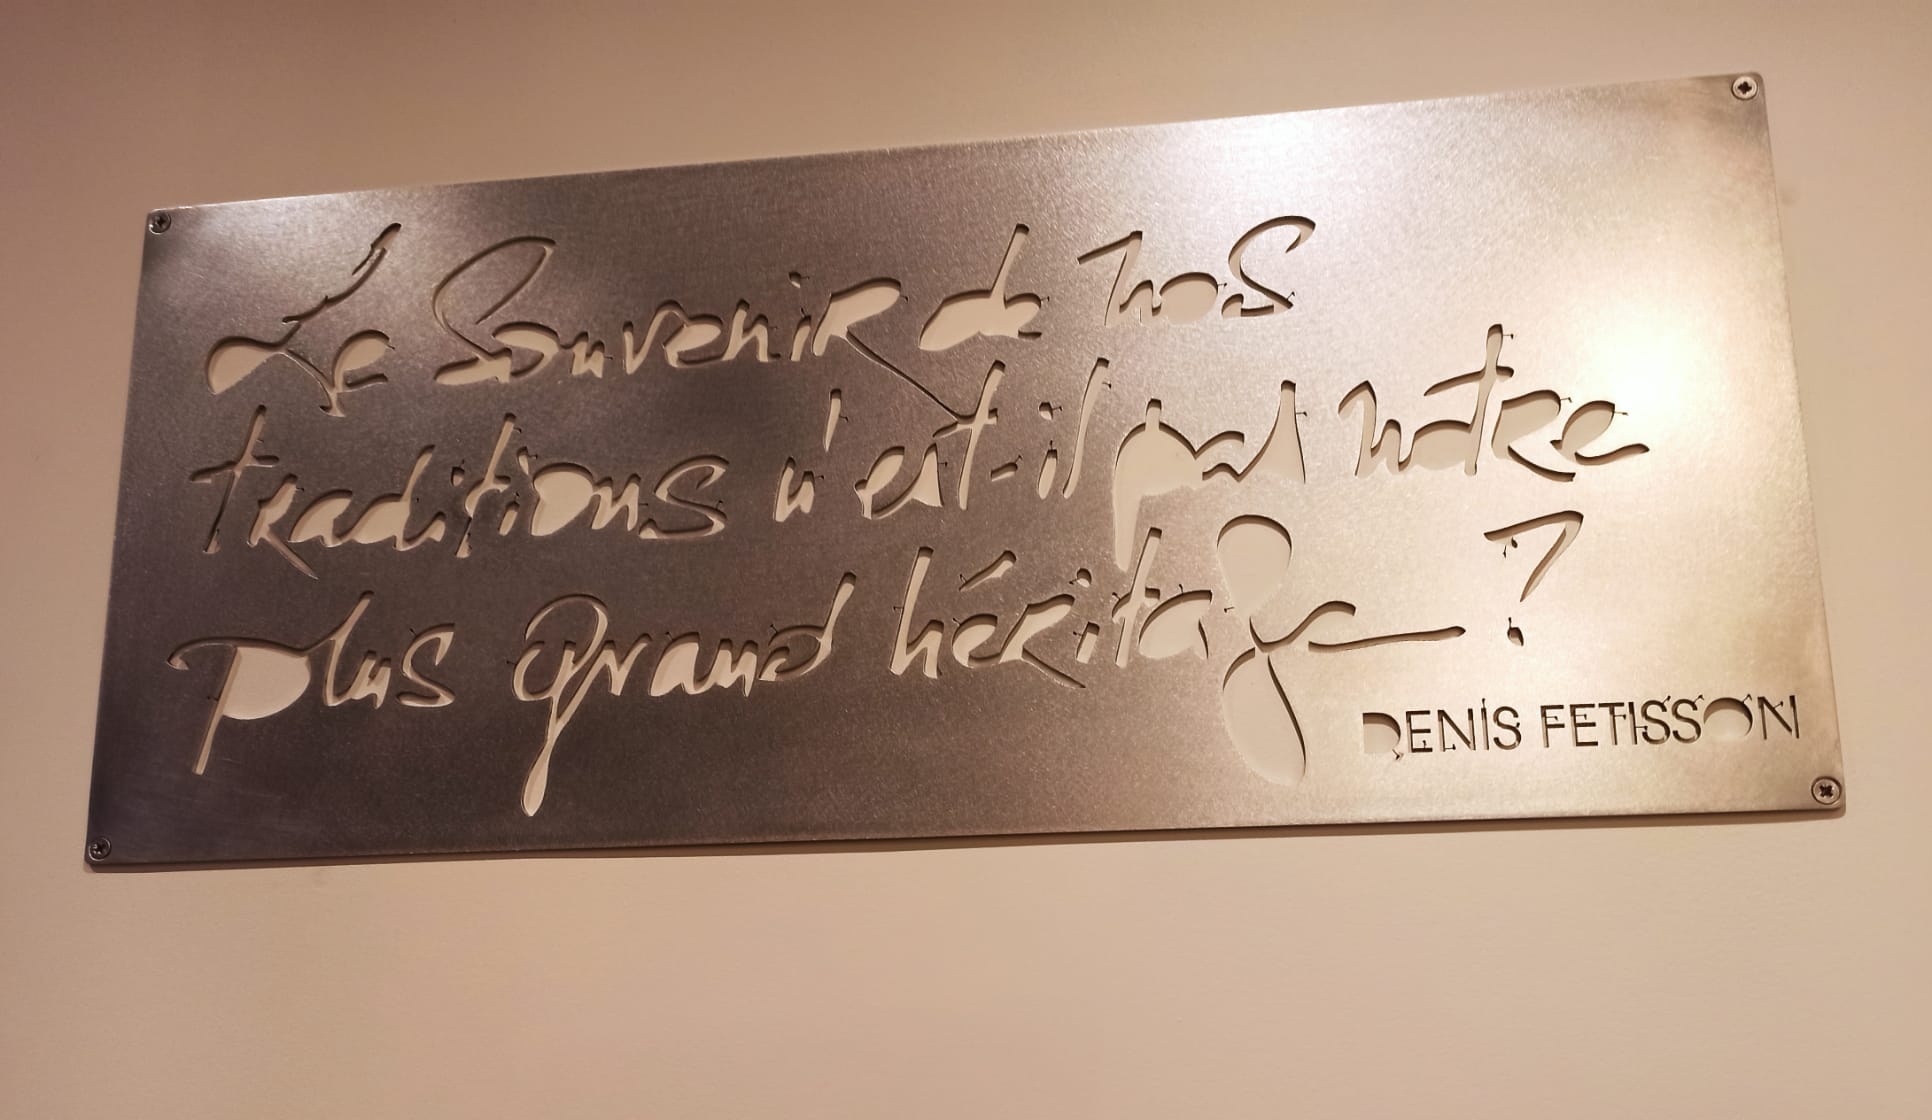 Le Souvenir de nos
traditions n'est-il pas notre
plus grand héritage ?
DENIS FETISSON